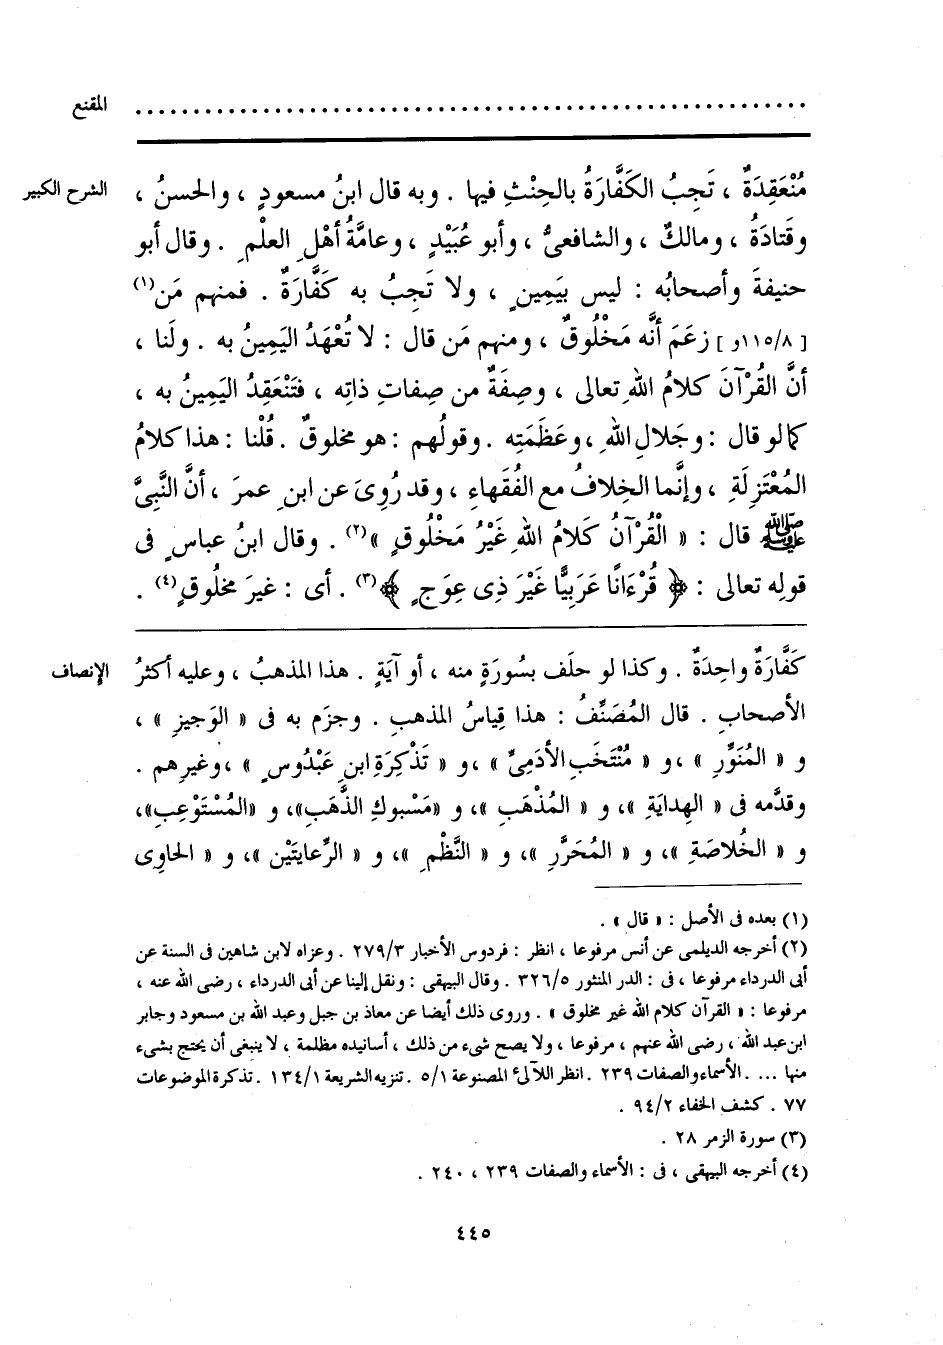 المقنع ............................................................
الشرح الكبير مُنْعَقِدَةٌ ، تَجِبُ الكَفَّارَةُ بالحِنْثِ فيها . وبه قال ابنُ مسعودٍ ، والحسنُ ،
وقَتادَةُ ، ومالكٌ ، والشافعىُّ ، وأبو عُبَيْدٍ ، وعامَّةُ أهْلِ العلْمِ . وقال أبو
حنيفةَ وأصحابُه : ليس بيَمِينٍ ، ولا تَجِبُ به كَفَّارَةٌ . فمنهم مَن(١)
[ ١١٥/٨و ] زعَمَ أنَّه مَخْلُوقٌ ، ومنهم مَن قال : لا تُعْهَدُ اليَمِينُ به . ولَنا ،
أنَّ القُرْآنَ كلامُ اللهِ تعالى ، وصِفَةٌ من صِفاتِ ذاتِه ، فتَنْعَقِدُ اليَمِينُ به ،
كما لو قال : وجَلالِ اللهِ ، وعَظَمَتِه . وقولُهم : هو مخلوقٌ . قُلْنا : هذا كلامُ
المُعْتَزِلَةِ ، وإنَّما الخِلافُ مع الفُقَهاءِ ، وقد رُوِىَ عن ابنِ عمرَ ، أنَّ النَّبِىَّ
ﷺ قال : « الْقُرْآنُ كَلامُ اللهِ غَيْرُ مَخْلُوقٍ »(٢) . وقال ابنُ عباسٍ فى
قولِه تعالى : ﴿ قُرْءَانًا عَرَبِيًّا غَيْرَ ذِى عِوَجٍ ﴾(٣) . أى : غيرَ مخلُوقٍ(٤) .
الإنصاف كَفَّارَةٌ واحِدَةٌ . وكذا لو حلَف بسُورَةٍ منه ، أو آيَةٍ . هذا المذهبُ ، وعليه أكثرُ
الأصحابِ . قال المُصَنِّفُ : هذا قِياسُ المذهبِ . وجزَم به فى « الوَجيزِ » ،
و « المُنَوِّرِ » ، و « مُنْتَخَبِ الأدَمِىِّ » ، و « تَذْكِرَةِ ابنِ عَبْدُوسٍ » ، وغيرِهم .
وقدَّمه فى « الهِدايَةِ » ، و « المُذْهَبِ » ، و « مَسْبوكِ الذَّهَبِ » ، و « المُسْتَوْعِبِ » ،
و « الخُلاصَةِ » ، و « المُحَرَّرِ » ، و « النَّظْمِ » ، و « الرِّعايتَيْن » ، و « الحاوِى
(١) بعده فى الأصل : « قال » .
(٢) أخرجه الديلمى عن أنس مرفوعا ، انظر : فردوس الأخبار ٢٧٩/٣ . وعزاه لابن شاهين فى السنة عن
أبى الدرداء مرفوعا ، فى : الدر المنثور ٣٢٦/٥ . وقال البيهقى : ونقل إلينا عن أبى الدرداء ، رضى الله عنه ،
مرفوعا : « القرآن كلام الله غير مخلوق » . وروى ذلك أيضا عن معاذ بن جبل وعبد الله بن مسعود وجابر
ابن عبد الله ، رضى الله عنهم ، مرفوعا ، ولا يصح شىء من ذلك ، أسانيده مظلمة ، لا ينبغى أن يحتج بشىء
منها ... . الأسماء والصفات ٢٣٩ . انظر اللآلئ المصنوعة ٥/١ . تنزيه الشريعة ١٣٤/١ . تذكرة الموضوعات
٧٧ . كشف الخفاء ٩٤/٢ .
(٣) سورة الزمر ٢٨ .
(٤) أخرجه البيهقى ، فى : الأسماء والصفات ٢٣٩ ، ٢٤٠ .
٤٤٥